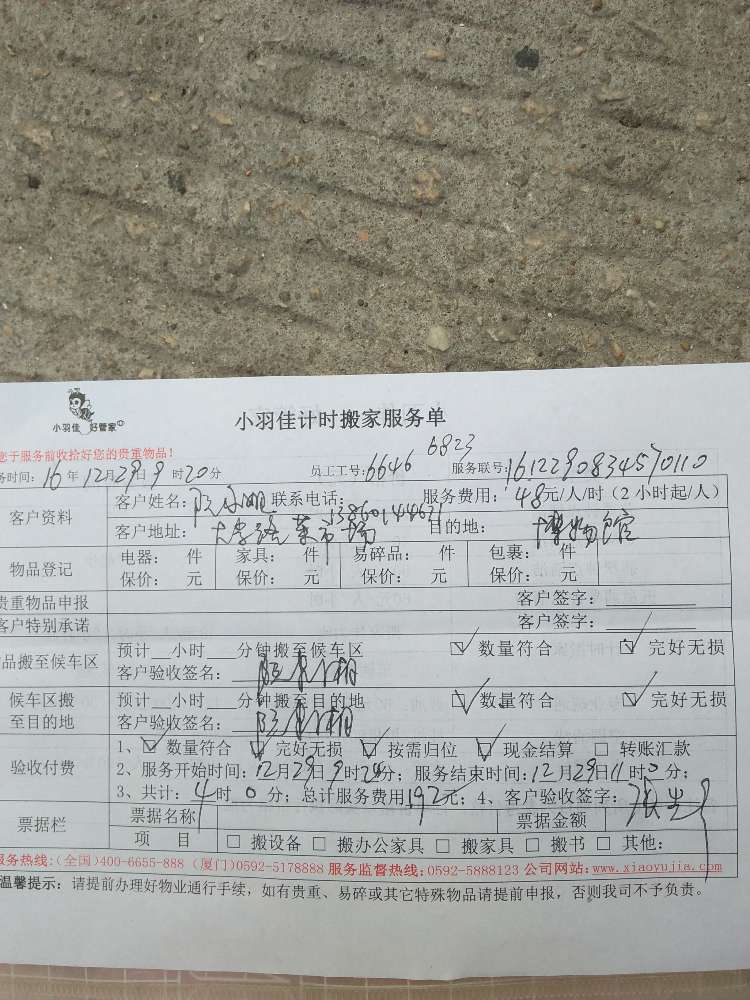 小羽佳 好管家
小羽佳计时搬家服务单
您于服务前收拾好您的贵重物品!
6823
务时间:16年12月29日9时20分 员工工号:6646 服务联号:1612290834570110
客户资料
客户姓名: 联系电话:13860144621 服务费用:48元/人/时(2小时起/人)
客户地址:大学路菜市场 目的地:博物馆
物品登记
电器: 件 家具: 件 易碎品: 件 包裹: 件
保价: 元 保价: 元 保价: 元 保价: 元
贵重物品申报 客户签字:
客户特别承诺 客户签字:
品搬至候车区
预计__小时___分钟搬至候车区 ☑数量符合 ☑完好无损
客户验收签名:
候车区搬至目的地
预计__小时___分钟搬至目的地 ☑数量符合 ☑完好无损
客户验收签名:
验收付费
1、☑数量符合 ☑完好无损 ☑按需归位 ☑现金结算 □转账汇款
2、服务开始时间:12月29日9时20分;服务结束时间:12月29日11时0分;
3、共计:4时0分;总计服务费用192元;4、客户验收签字:
票据栏
票据名称 票据金额
项 目 □搬设备 □搬办公家具 □搬家具 □搬书 □其他:
服务热线:(全国)400-6655-888 (厦门)0592-5178888 服务监督热线:0592-5888123 公司网站:www.xiaoyujia.com
温馨提示:请提前办理好物业通行手续,如有贵重、易碎或其它特殊物品请提前申报,否则我司不予负责。